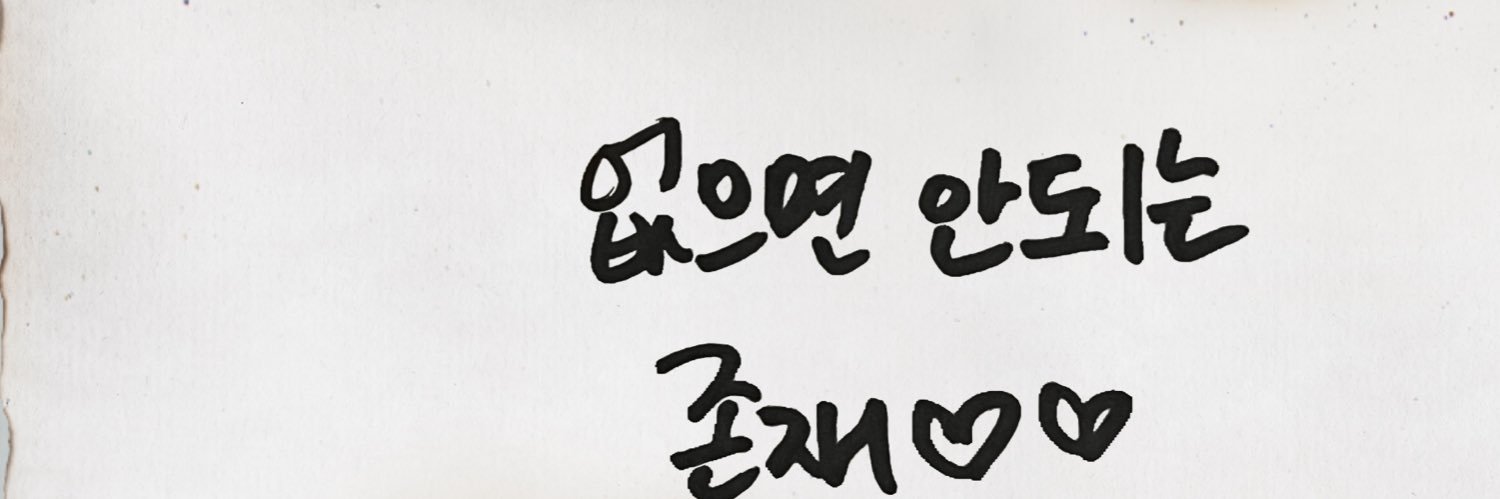 없으면 안되는
존재♡♡